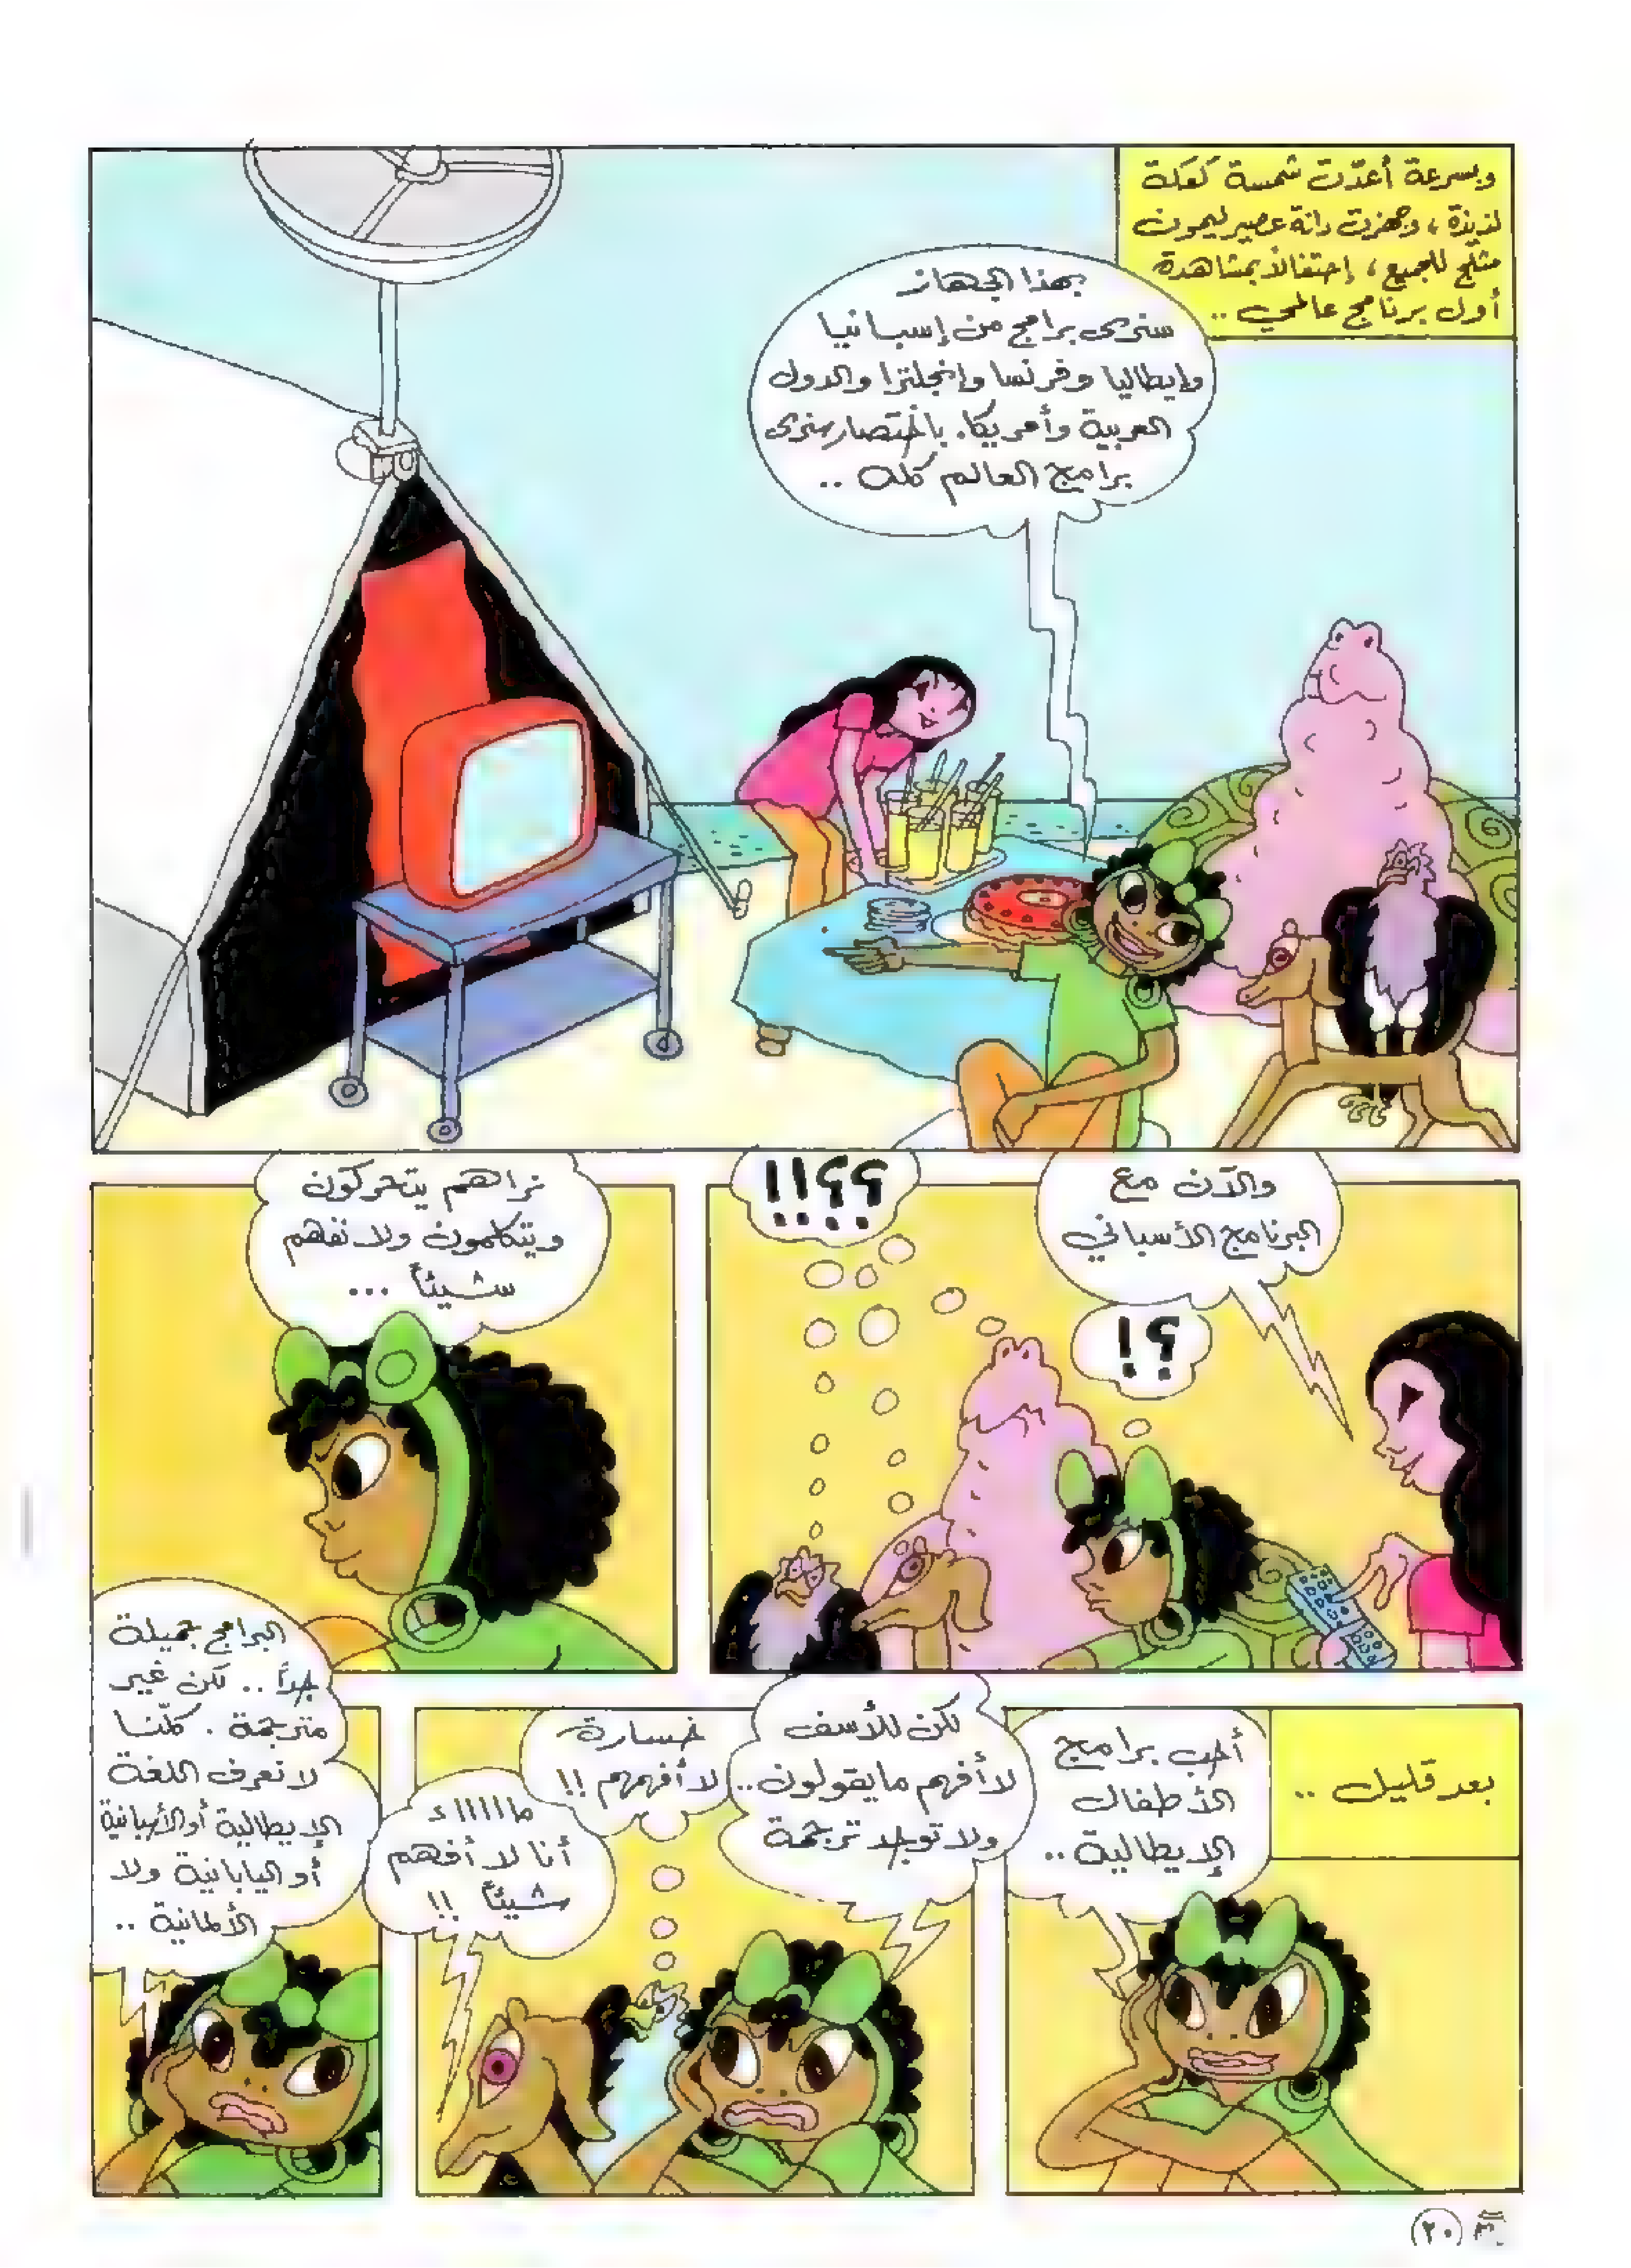 وبسرعة أعدّت شمسة كعكة
لذيذة، وجهزت دانة عصير ليمون
مثلج للجميع، إحتفالاً بمشاهدة
أول برنامج عالمي ..
بهذا الجهاز
سنرى برامج من إسبانيا
وإيطاليا وفرنسا وإنجلترا والدول
العربية وأمريكا. باختصار سنرى
برامج العالم كله ..
والآن مع
البرنامج الأسباني
؟!
؟؟!!
نراهم يتحركون
ويتكلمون ولا نفهم
شيئاً ...
بعد قليل ..
أحب برامج
الأطفال
الإيطالية ..
لكن للأسف
لا أفهم ما يقولون ..
ولا توجد ترجمة
خسارة
لا أفهمهم !!
ماااااء
أنا لا أفهم
شيئاً !!
البرامج جميلة
جداً .. لكن غير
مترجمة . كلّنا
لا نعرف اللغة
الإيطالية أو الأسبانية
أو اليابانية ولا
الألمانية ..
٢٠